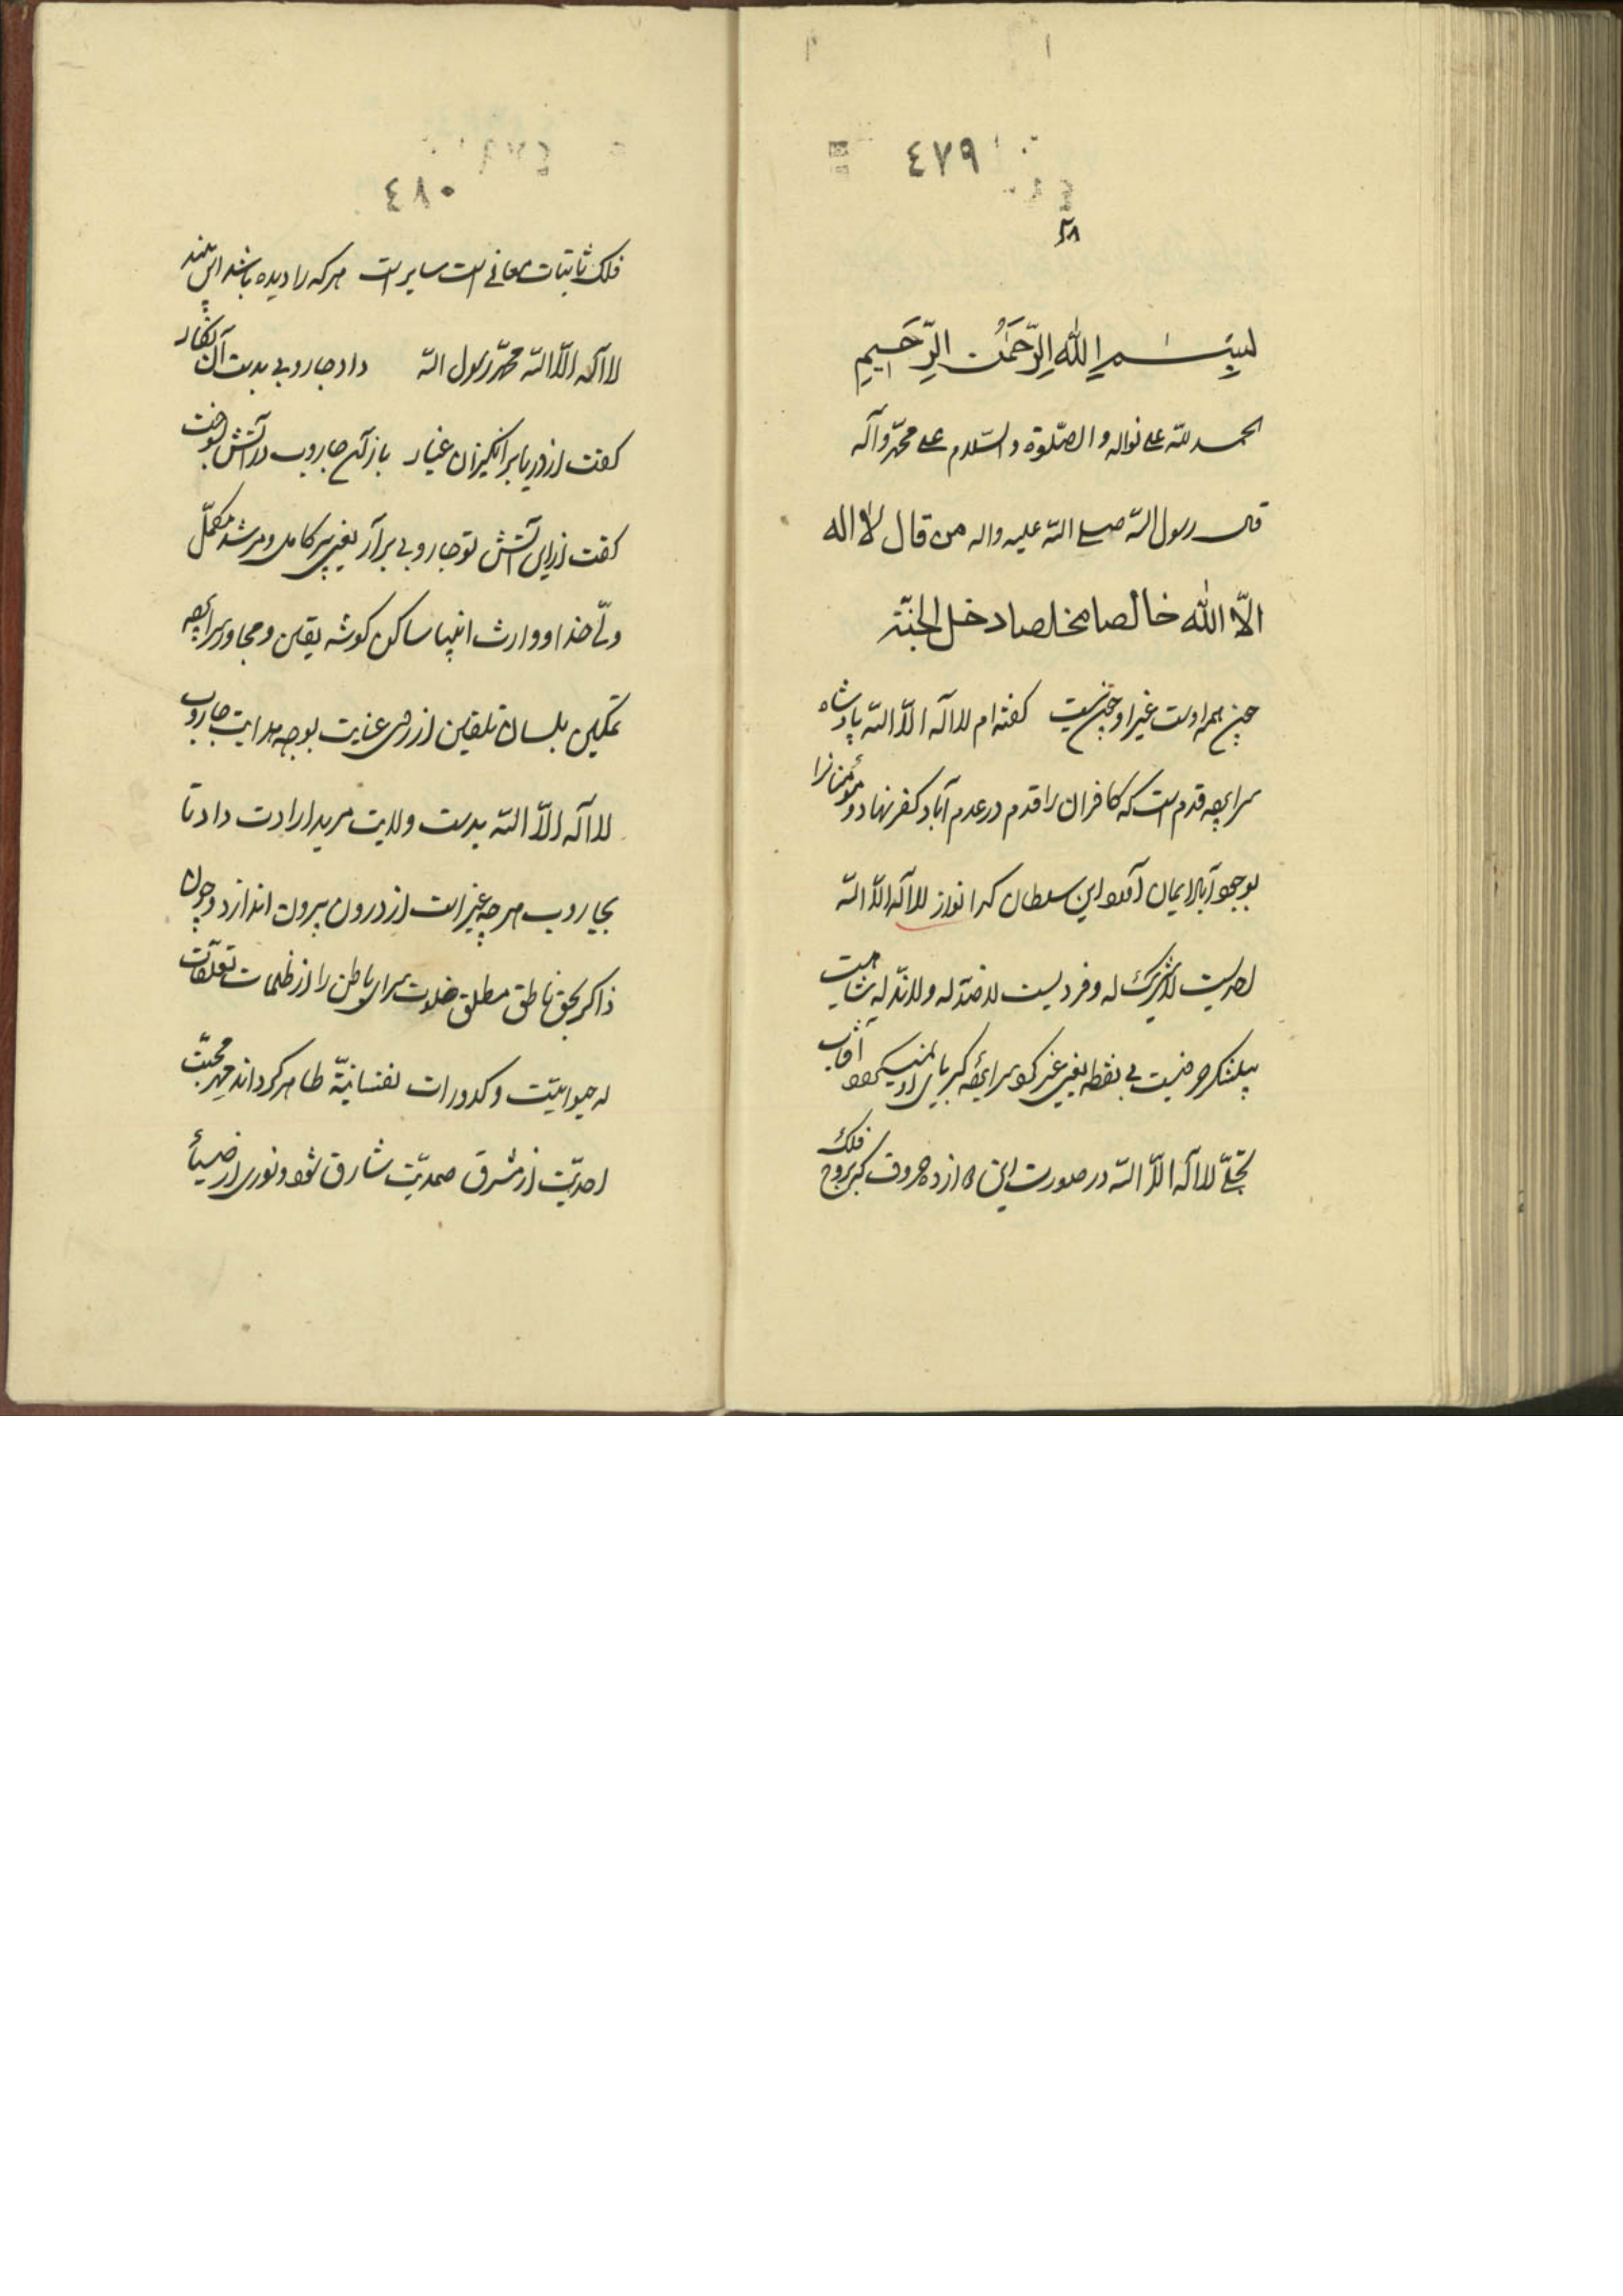 ٤٧٩
٢٨
بسم الله الرحمن الرحیم
الحمد لله علی نواله والصلوة والسلام علی محمد وآله
قال رسول الله صلی الله علیه واله من قال لا اله
الّا الله خالصا مخلصا دخل الجنّة
چون همه اوست غیر او چون نیست گفته‌ام لا اله الّا الله پادشاه
سراپچه قدم است که کافران را قدم در عدم آباد کفر نهاد و مؤمنانرا
بوجود آباد ایمان آمد این سلطان کدا نواز لا اله الّا الله
احدیست لا شریک له و فردیست لا ضدّ له ولا ندّ له
بی نقطه یعنی غیر کبریای او آفتاب
تجلّی لا اله الّا الله در صورت این دوازده حروف که بروج فلک
٤٨٠
فلک ثابتات معانی است سایر است هر که را دیده باشد این بیند
لا اله الّا الله محمّد رسول الله داد جاروبی بدست آن نگار
گفت از دریا برانگیزان غبار باز آن جاروب در آتش بسوخت
گفت ازین آتش تو جاروبی برآر یعنی پیر کامل و مرشد مکمّل
ولّی خدا و وارث انبیا ساکن کوشه یقین و مجاور سراپچه
تمکین بلسان تلقین از روی عنایت بوجه هدایت جاروب
لا اله الّا الله بدست ولایت مرید ارادت داد تا
بجاروب هر چه غیر است از درون بیرون اندازد و چون
ذاکر بحق ناطق مطلق خلوت سرای باطن را از ظلمات تعلّقات
له حیوانیّت و کدورات نفسانیّة طاهر کرداند مهر محبّت
احدیّت از مشرق صمدیّت شارق شود و نوری از ضیاء